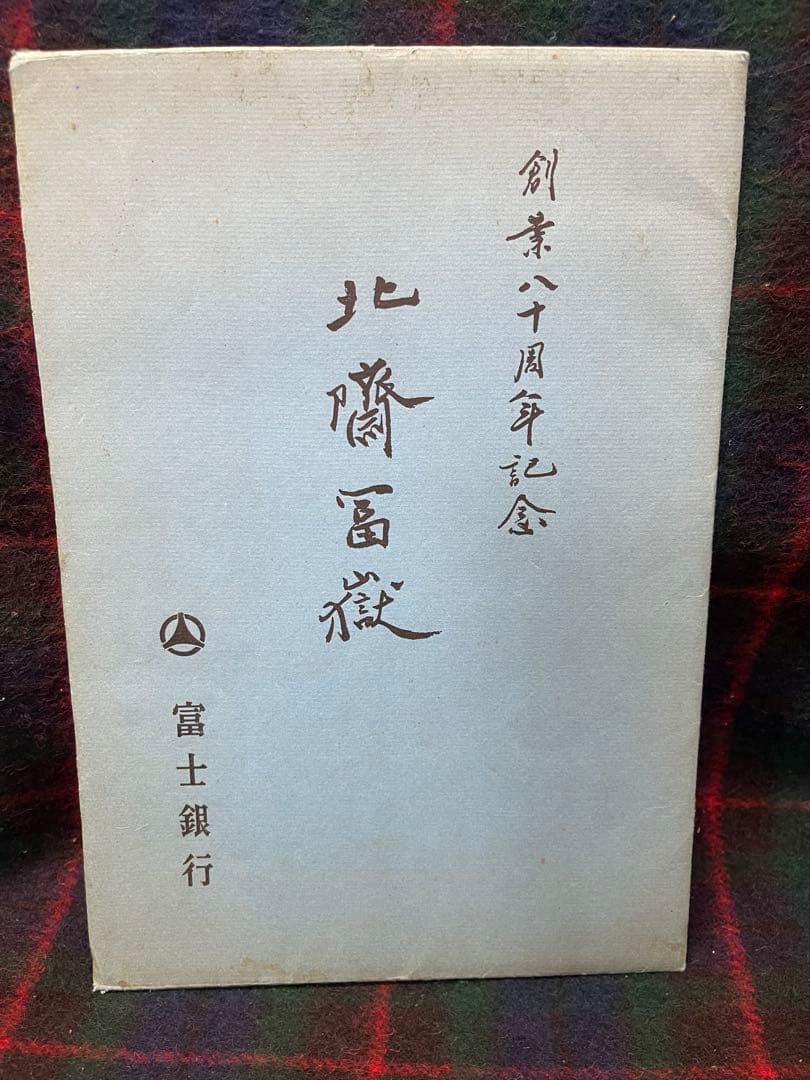 創業八十周年記念
北齋冨嶽
富士銀行